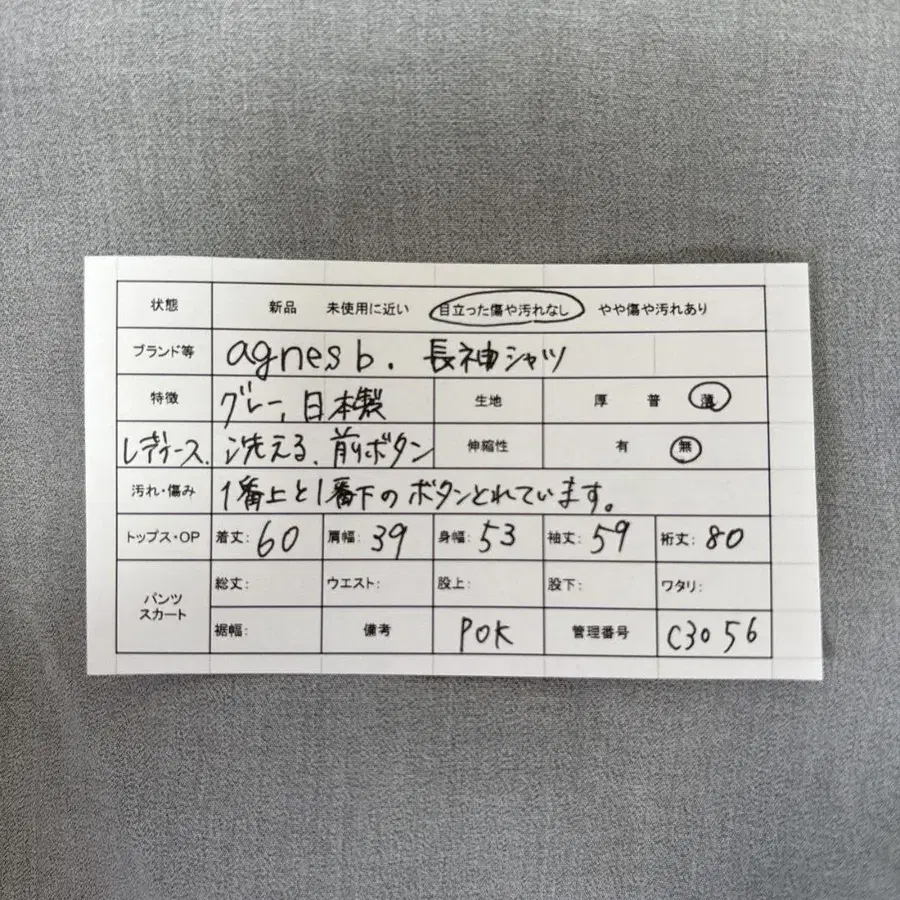 状態 新品 未使用に近い 目立った傷や汚れなし やや傷や汚れあり
ブランド等 agnes b. 長袖シャツ
特徴 グレー、日本製 生地 厚 普 薄
洗える、前ボタン 伸縮性 有 無
汚れ・傷み 1番上と1番下のボタンとれています。
トップス・OP 着丈: 60 肩幅: 39 身幅: 53 袖丈: 59 裄丈: 80
パンツ スカート 総丈: ウエスト: 股上: 股下: ワタリ:
裾幅: 備考 POK 管理番号 C3056